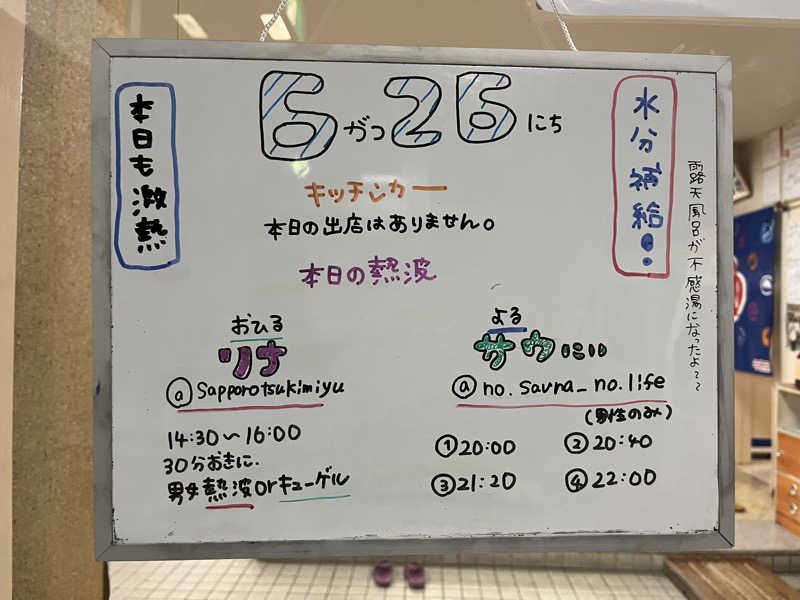 6がつ26にち
本日も激熱
水分補給!!
露天風呂が不感湯になったよ〜〜
キッチンカー
本日の出店はありません。
本日の熱波
おひる
リナ
@Sapporotsukimiyu
14:30〜16:00
30分おきに.
男女熱波orキューゲル
よる
サウにい
@no.sauna_no.life
(男性のみ)
①20:00 ②20:40
③21:20 ④22:00